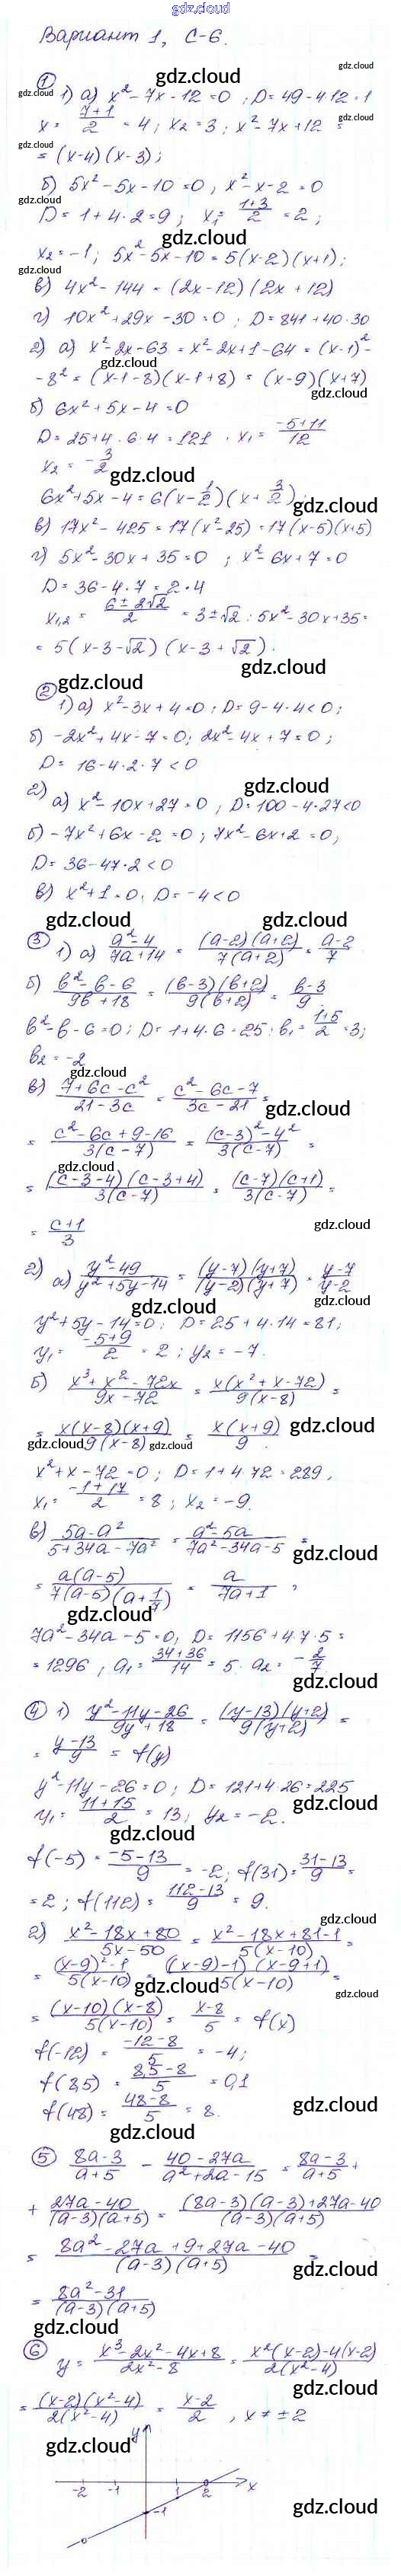 gdz.cloud
Вариант 1, С-6.
① 1) а) x² - 7x - 12 = 0 ; D = 49 - 4·12 = 1
x = (7+1)/2 = 4 ; x₂ = 3 ; x² - 7x + 12 =
= (x-4)(x-3) ;
б) 5x² - 5x - 10 = 0 ; x² - x - 2 = 0
D = 1 + 4·2 = 9 ; x₁ = (1+3)/2 = 2 ;
x₂ = -1 ; 5x² - 5x - 10 = 5(x-2)(x+1) ;
в) 4x² - 144 = (2x-12)(2x+12)
г) 10x² + 29x - 30 = 0 ; D = 841 + 40·30
2) а) x² - 2x - 63 = x² - 2x + 1 - 64 = (x-1)² -
- 8² = (x-1-8)(x-1+8) = (x-9)(x+7)
б) 6x² + 5x - 4 = 0
D = 25 + 4·6·4 = 121 , x₁ = (-5+11)/12
x₂ = -3/2
6x² + 5x - 4 = 6(x - 1/2)(x + 3/2) ;
в) 17x² - 425 = 17(x² - 25) = 17(x-5)(x+5)
г) 5x² - 30x + 35 = 0 ; x² - 6x + 7 = 0
D = 36 - 4·7 = 2·4
x₁,₂ = (6 ± 2√2)/2 = 3 ± √2 ; 5x² - 30x + 35 =
= 5(x - 3 - √2)(x - 3 + √2) .
② 1) а) x² - 3x + 4 = 0 ; D = 9 - 4·4 < 0 ;
б) -2x² + 4x - 7 = 0 ; 2x² - 4x + 7 = 0 ;
D = 16 - 4·2·7 < 0
2) а) x² - 10x + 27 = 0 , D = 100 - 4·27 < 0
б) -7x² + 6x - 2 = 0 ; 7x² - 6x + 2 = 0 ;
D = 36 - 4·7·2 < 0
в) x² + 1 = 0 , D = -4 < 0
③ 1) а) (a²-4)/(7a+14) = (a-2)(a+2)/7(a+2) = (a-2)/7
б) (b²-b-6)/(9b+18) = (b-3)(b+2)/9(b+2) = (b-3)/9
b² - b - 6 = 0 ; D = 1 + 4·6 = 25 ; b₁ = (1+5)/2 = 3 ;
b₂ = -2
в) (7+6c-c²)/(21-3c) = (c²-6c-7)/(3c-21) =
= (c²-6c+9-16)/3(c-7) = ((c-3)²-4²)/3(c-7) =
= (c-3-4)(c-3+4)/3(c-7) = (c-7)(c+1)/3(c-7) =
= (c+1)/3
2) а) (y²-49)/(y²+5y-14) = (y-7)(y+7)/(y-2)(y+7) = (y-7)/(y-2)
y² + 5y - 14 = 0 ; D = 25 + 4·14 = 81 ;
y₁ = (-5+9)/2 = 2 ; y₂ = -7.
б) (x³+x²-72x)/(9x-72) = x(x²+x-72)/9(x-8) =
= x(x-8)(x+9)/9(x-8) = x(x+9)/9 .
x² + x - 72 = 0 ; D = 1 + 4·72 = 289 ,
x₁ = (-1+17)/2 = 8 ; x₂ = -9.
в) (5a-a²)/(5+34a-7a²) = (a²-5a)/(7a²-34a-5) =
= a(a-5)/7(a-5)(a+1/7) = a/(7a+1) ,
7a² - 34a - 5 = 0, D = 1156 + 4·7·5 =
= 1296 , a₁ = (34+36)/14 = 5. a₂ = -2/7 .
④ 1) (y²-11y-26)/(9y+18) = (y-13)(y+2)/9(y+2) =
= (y-13)/9 = f(y)
y² - 11y - 26 = 0 ; D = 121 + 4·26 = 225
y₁ = (11+15)/2 = 13 ; y₂ = -2.
f(-5) = (-5-13)/9 = -2 ; f(31) = (31-13)/9 =
= 2 ; f(112) = (112-13)/9 = 9.
2) (x²-18x+80)/(5x-50) = (x²-18x+81-1)/5(x-10) =
= ((x-9)²-1)/5(x-10) = ((x-9)-1)(x-9+1)/5(x-10) =
= (x-10)(x-8)/5(x-10) = (x-8)/5 = f(x)
f(-12) = (-12-8)/5 = -4 ;
f(8,5) = (8,5-8)/5 = 0,1
f(48) = (48-8)/5 = 8.
⑤ (8a-3)/(a+5) - (40-27a)/(a²+2a-15) = (8a-3)/(a+5) +
+ (27a-40)/(a-3)(a+5) = ((8a-3)(a-3)+27a-40)/(a-3)(a+5)
= (8a²-27a+9+27a-40)/(a-3)(a+5) =
= (8a²-31)/(a-3)(a+5)
⑥ y = (x³-2x²-4x+8)/(2x²-8) = (x²(x-2)-4(x-2))/2(x²-4)
= (x-2)(x²-4)/2(x²-4) = (x-2)/2 , x ≠ ±2
y
-2 -1 2 x
-1